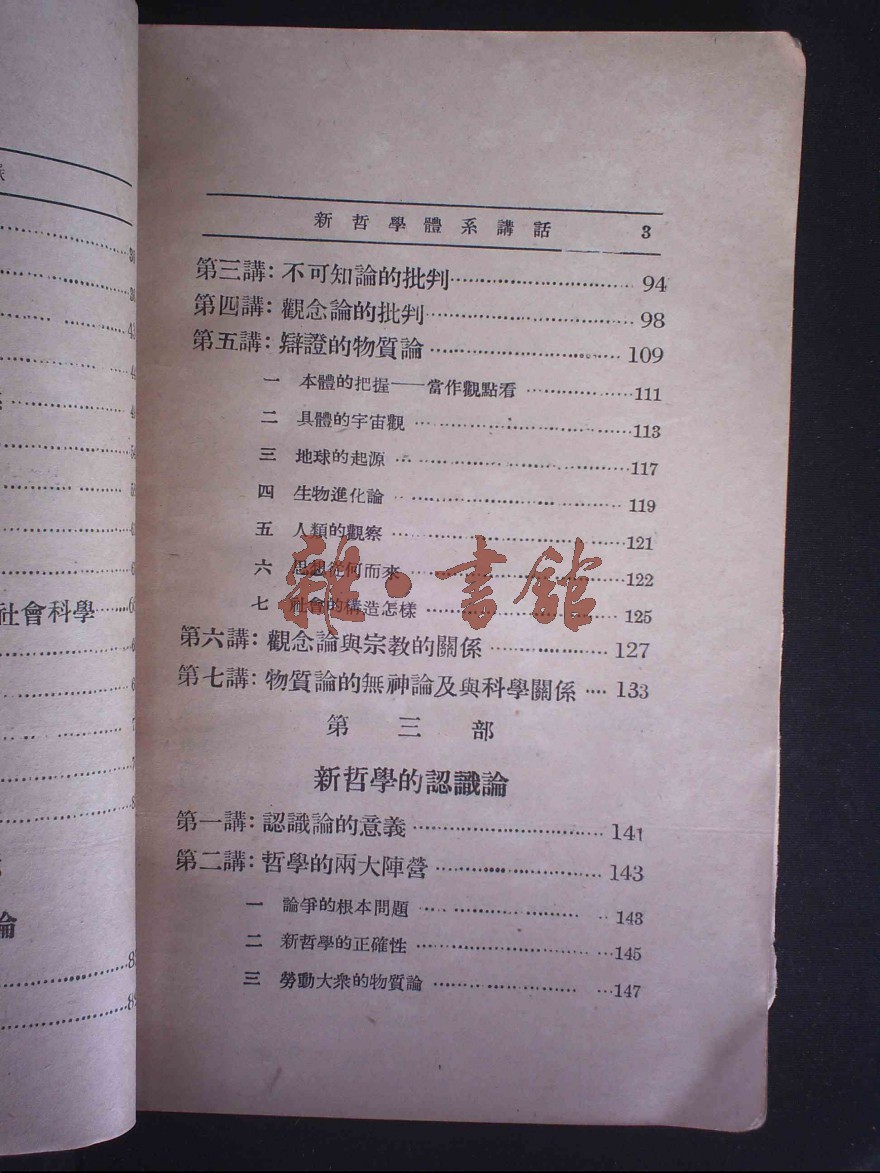 新哲學體系講話 3
第三講：不可知論的批判 94
第四講：觀念論的批判 98
第五講：辯證的物質論 109
一 本體的把握——當作觀點看 111
二 具體的宇宙觀 113
三 地球的起源 117
四 生物進化論 119
五 人類的觀察 121
六 思想從何而來 122
七 社會的構造怎樣 125
第六講：觀念論與宗教的關係 127
第七講：物質論的無神論及與科學關係 133
第三部
新哲學的認識論
第一講：認識論的意義 141
第二講：哲學的兩大陣營 143
一 論爭的根本問題 143
二 新哲學的正確性 145
三 勞動大衆的物質論 147
社會科學
論
雜·書館